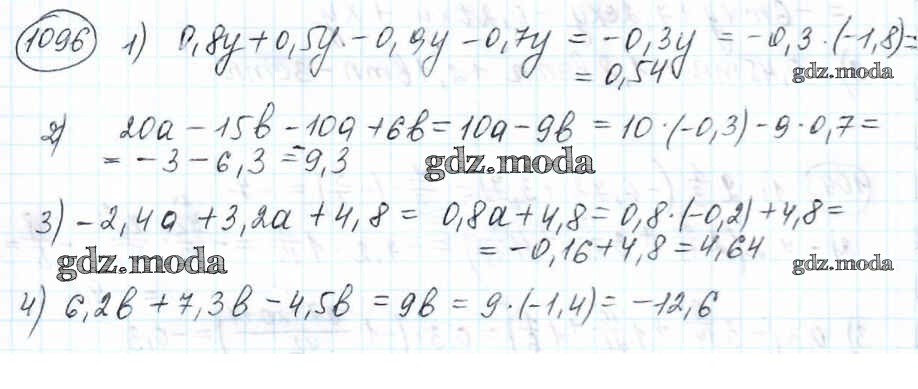 1096 1) 0,8y + 0,5y - 0,9y - 0,7y = -0,3y = -0,3 · (-1,8) =
= 0,54
gdz.moda
2) 20a - 15b - 10a + 6b = 10a - 9b = 10 · (-0,3) - 9 · 0,7 =
= -3 - 6,3 = -9,3
gdz.moda
3) -2,4a + 3,2a + 4,8 = 0,8a + 4,8 = 0,8 · (-0,2) + 4,8 =
= -0,16 + 4,8 = 4,64
gdz.moda gdz.moda
4) 6,2b + 7,3b - 4,5b = 9b = 9 · (-1,4) = -12,6